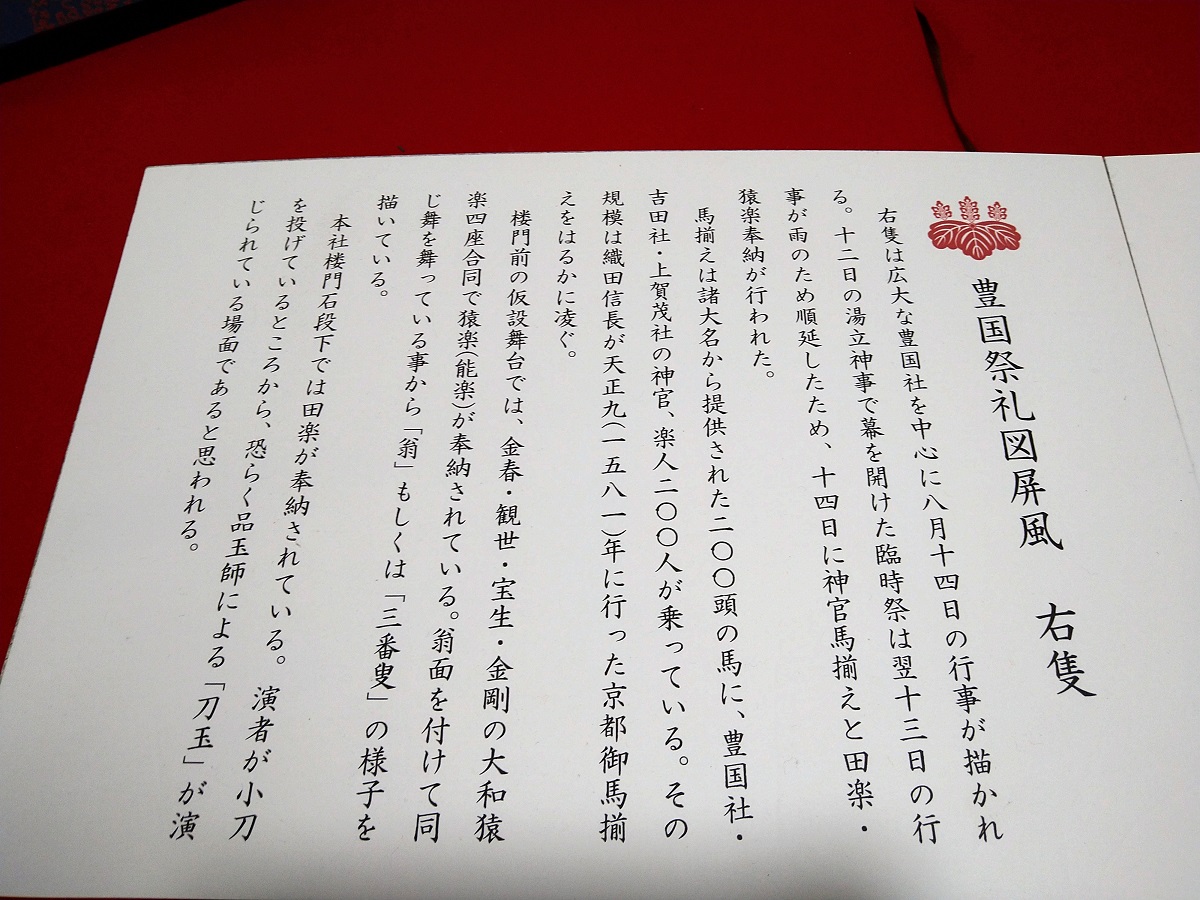 豊国祭礼図屏風　右隻
右隻は広大な豊国社を中心に八月十四日の行事が描かれ
る。十二日の湯立神事で幕を開けた臨時祭は翌十三日の行
事が雨のため順延したため、十四日に神官馬揃えと田楽・
猿楽奉納が行われた。
馬揃えは諸大名から提供された二〇〇頭の馬に、豊国社・
吉田社・上賀茂社の神官、楽人二〇〇人が乗っている。その
規模は織田信長が天正九(一五八一)年に行った京都御馬揃
えをはるかに凌ぐ。
楼門前の仮設舞台では、金春・観世・宝生・金剛の大和猿
楽四座合同で猿楽(能楽)が奉納されている。翁面を付けて同
じ舞を舞っている事から「翁」もしくは「三番叟」の様子を
描いている。
本社楼門石段下では田楽が奉納されている。演者が小刀
を投げているところから、恐らく品玉師による「刀玉」が演
じられている場面であると思われる。